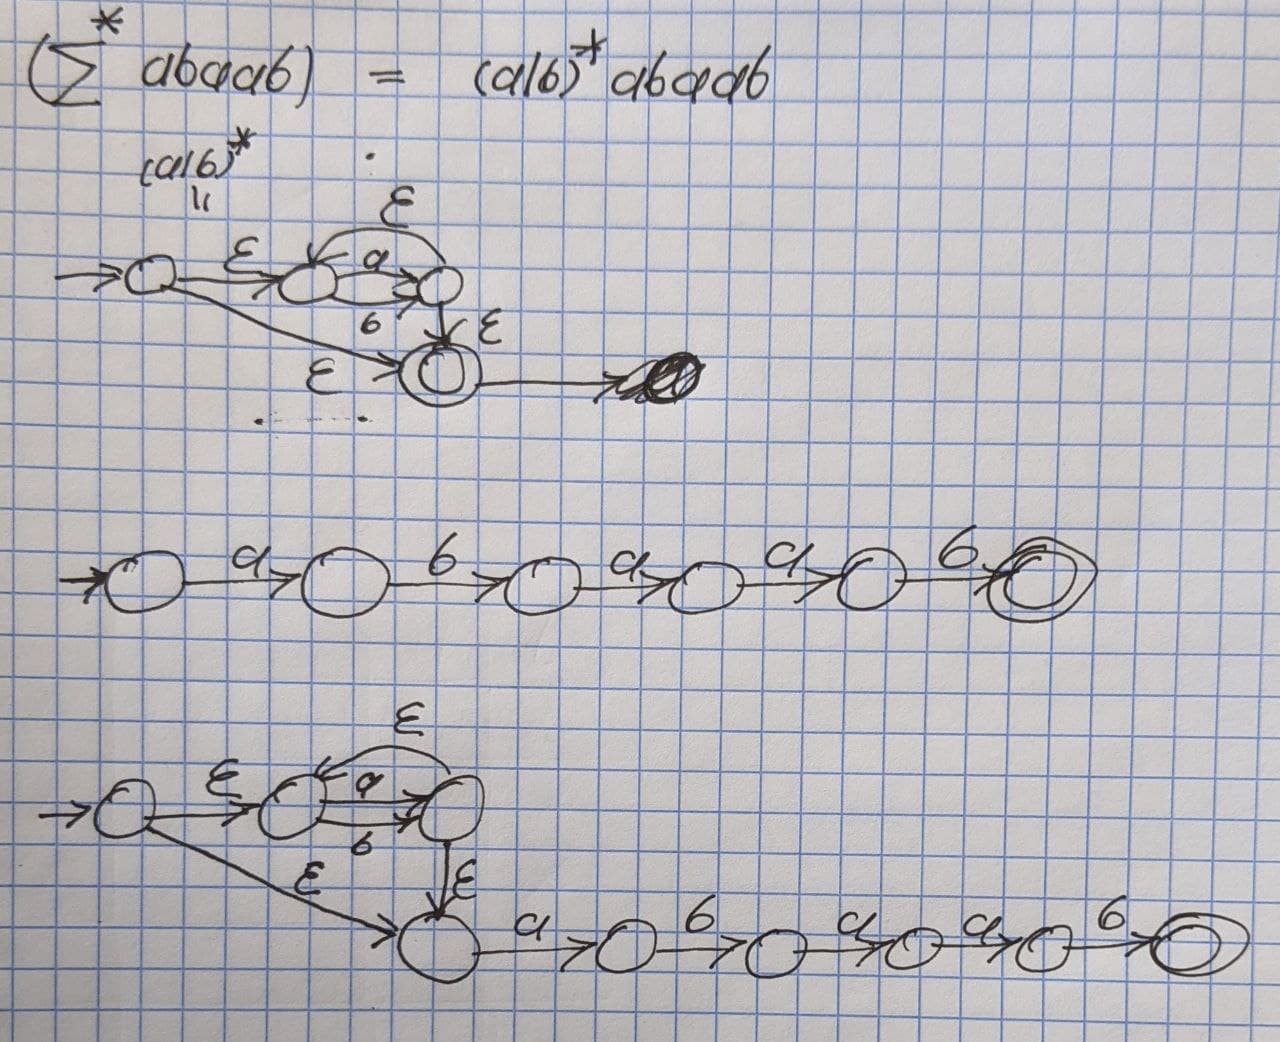 (Σ* abaab) = (a|b)* abaab
(a|b)*
=
ε
ε a
b ε
ε
a b a a b
ε
ε a
b
ε ε
a b a a b